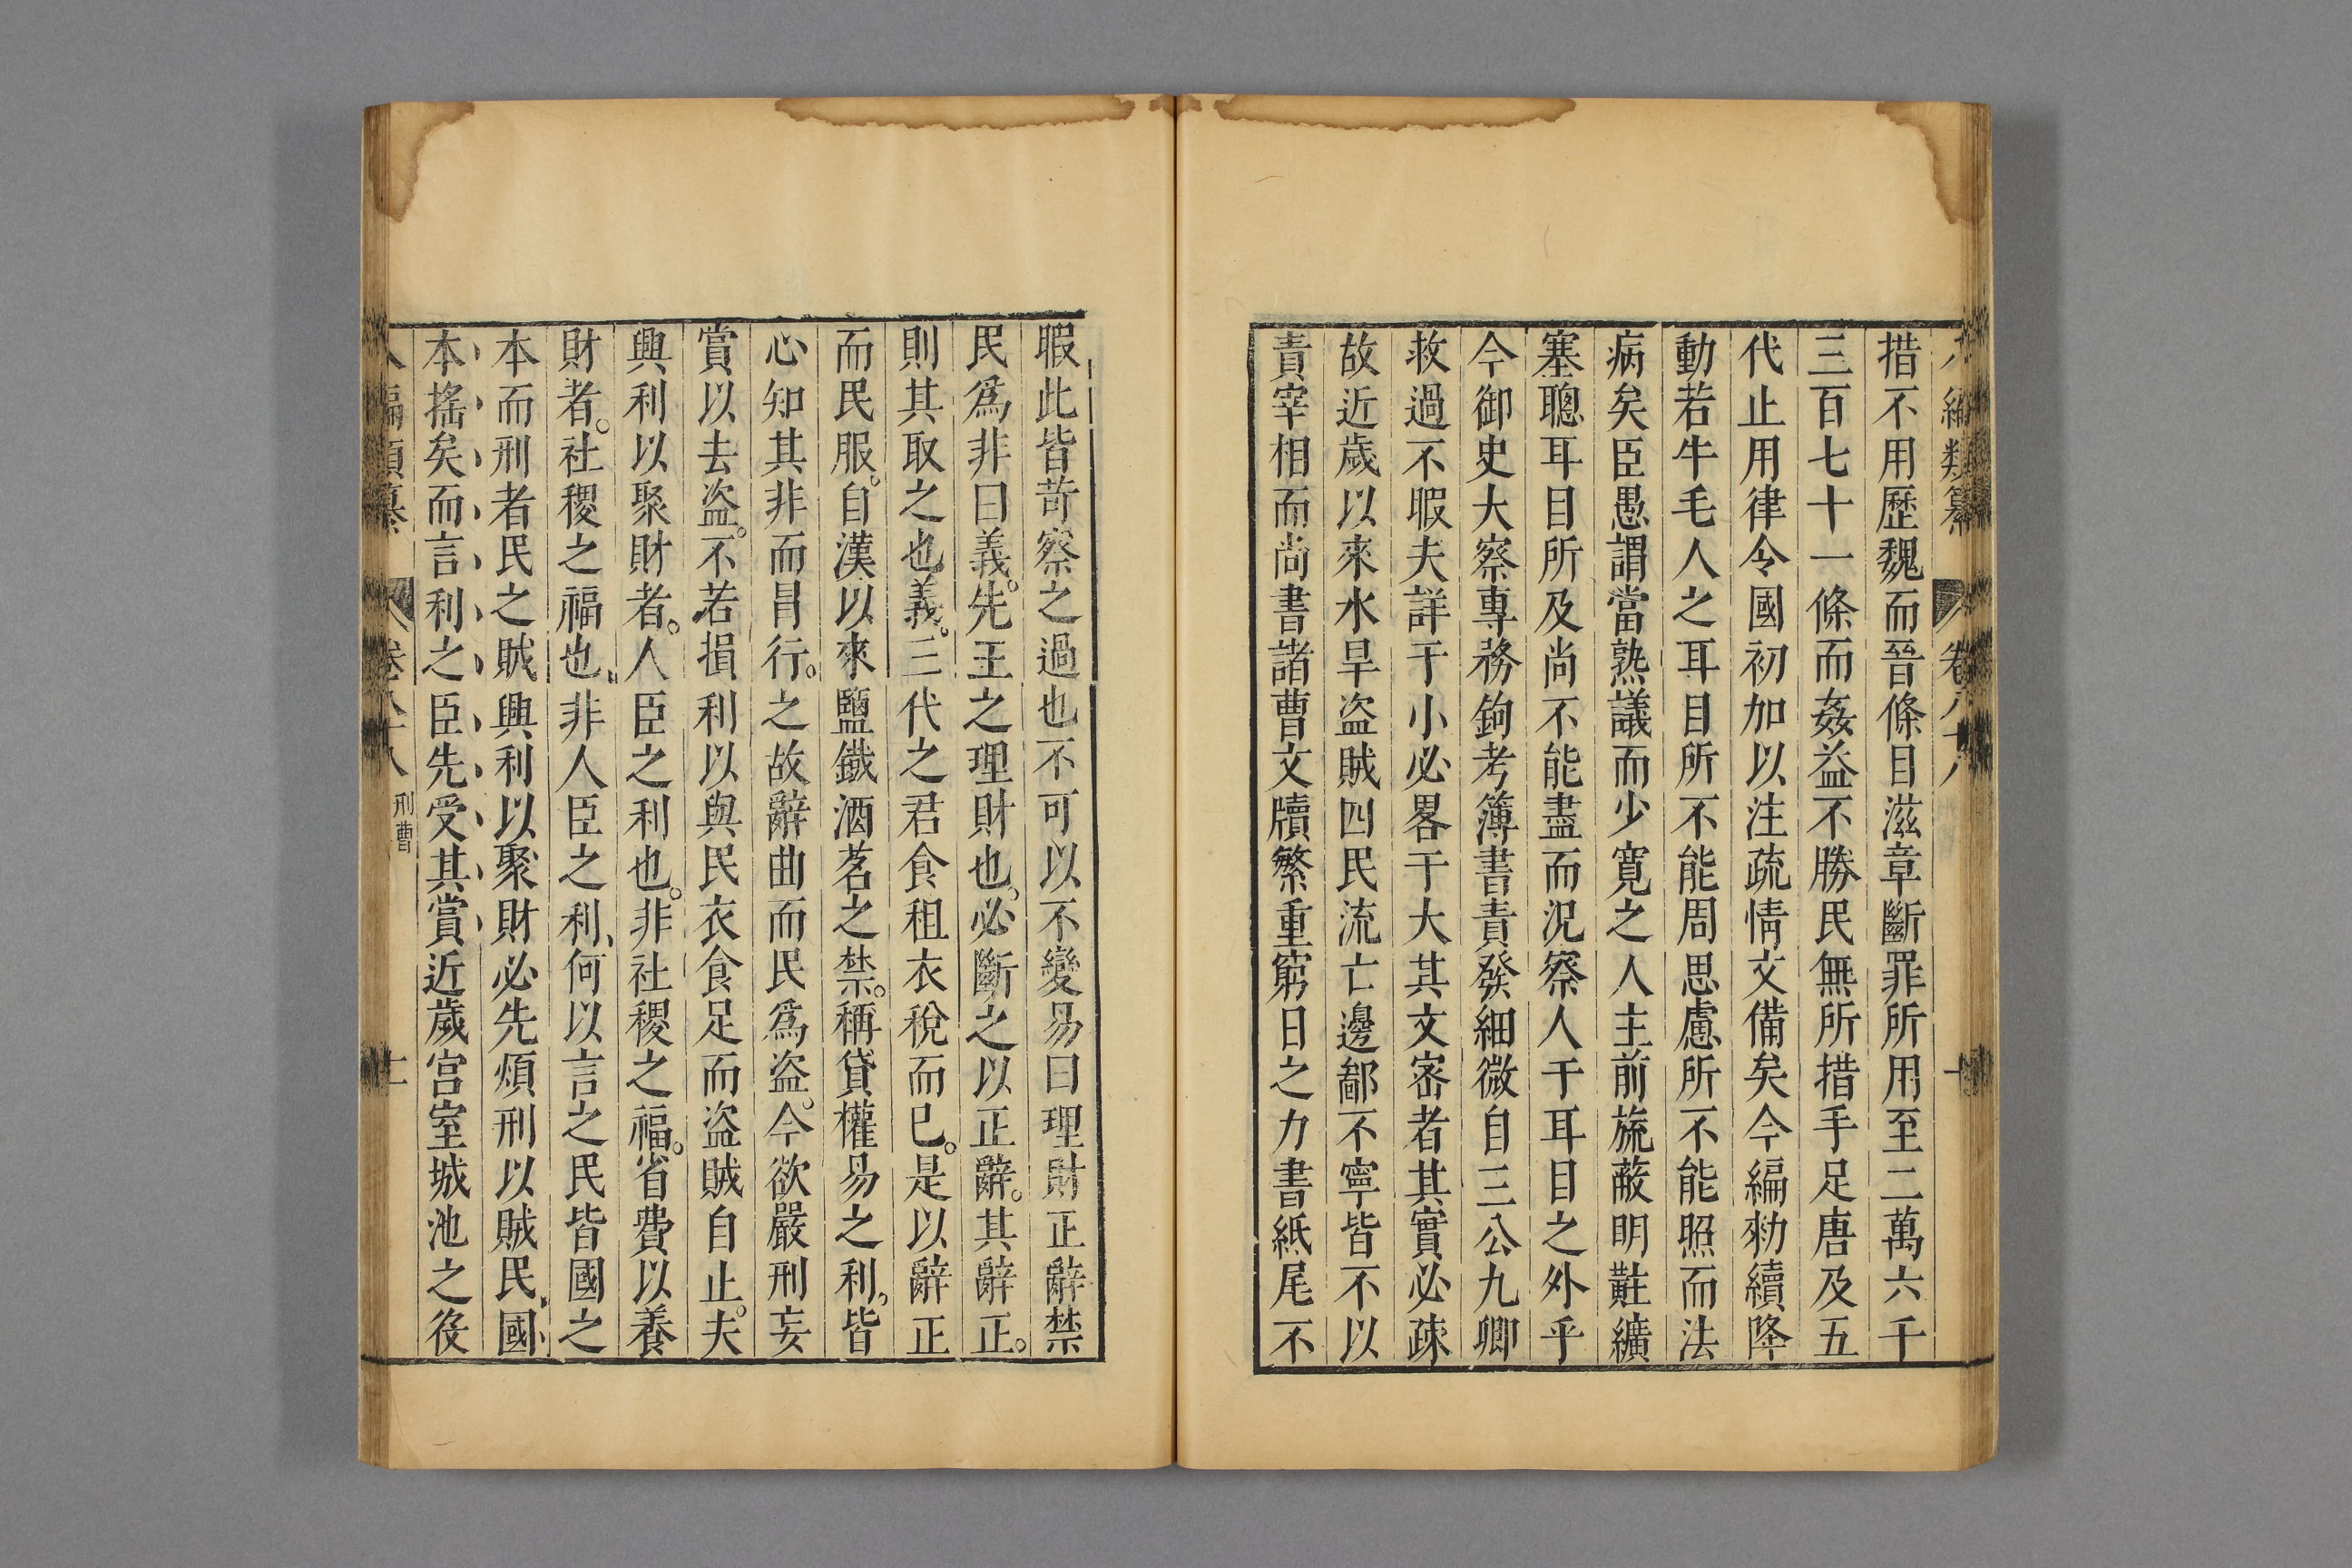 八編類纂 卷八十八 十
措不用歷魏而晉條目滋章斷罪所用至二萬六千
三百七十一條而姦益不勝民無所措手足唐及五
代止用律令國初加以注疏情文備矣今編勑續降
動若牛毛人之耳目所不能周思慮所不能照而法
病矣臣愚謂當熟議而少寬之人主前旒蔽明黈纊
塞聰耳目所及尚不能盡而況察人于耳目之外乎
今御史大察專務鉤考簿書責發細微自三公九卿
救過不暇夫詳于小必畧于大其文宻者其實必疎
故近歲以來水旱盗賊四民流亡邊鄙不寧皆不以
責宰相而尚書諸曹文牘繁重窮日之力書紙尾不
暇此皆苛察之過也不可以不變易曰理財正辭禁
民爲非曰義。先王之理財也。必斷之以正辭。其辭正。
則其取之也義。三代之君食租衣稅而已。是以辭正
而民服。自漢以來鹽鐵酒茗之禁。稱貸權易之利。皆
心知其非而冐行。之故辭曲而民爲盗。今欲嚴刑妄
賞以去盗。不若損利以與民衣食足而盗賊自止。夫
興利以聚財者。人臣之利也。非社稷之福。省費以養
財者。社稷之福也、非人臣之利、何以言之民皆國之
本而刑者民之賊興利以聚財必先煩刑以賊民、國
本搖矣而言利之臣先受其賞近歲宫室城池之役
八編類纂 卷八十八 刑曹 十一